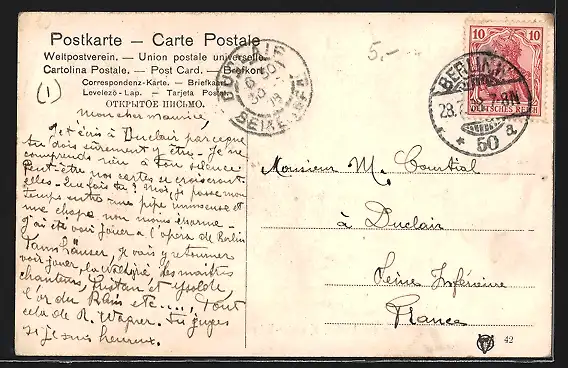 Postkarte — Carte Postale
Weltpostverein. — Union postale universelle.
Cartolina Postale. — Post Card. — Brefkort
Correspondenz-Karte. — Briefkaart
Levelező-Lap. — Tarjeta Postal
ОТКРЫТОЕ ПИСЬМО.
5,-
(1)
DUCLAIR
SEINE INFRE
BERLIN
50 a
10 10
DEUTSCHES REICH
Mon cher Maurice,
Je t'écris à Duclair parce que
tu dois sûrement y être. Je ne
comprends rien à ton silence
Peut-être nos cartes se croiseront
elles. Que fais-tu? Moi, je passe mon
temps entre une pipe immense et
une chope non moins énorme.
J'ai été voir jouer à l'opéra de Berlin
Tannhäuser, Je vais y retourner
voir jouer, la Walkyrie les maîtres
chanteurs, Tristan et Ysolde,
l'or du Rhin etc...., Tout
cela de R. Wagner. Tu juges
si je suis heureux.
Monsieur M. Courtial
à Duclair
Seine Inférieure
France
42